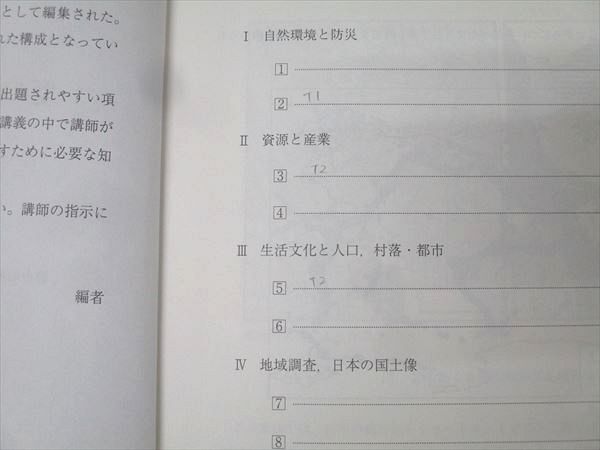 として編集された。
れた構成となってい
出題されやすい項
講義の中で講師が
すために必要な知
い。講師の指示に
編者
Ⅰ 自然環境と防災
1
2 T1
Ⅱ 資源と産業
3 T2
4
Ⅲ 生活文化と人口，村落・都市
5 T2
6
Ⅳ 地域調査，日本の国土像
7
8